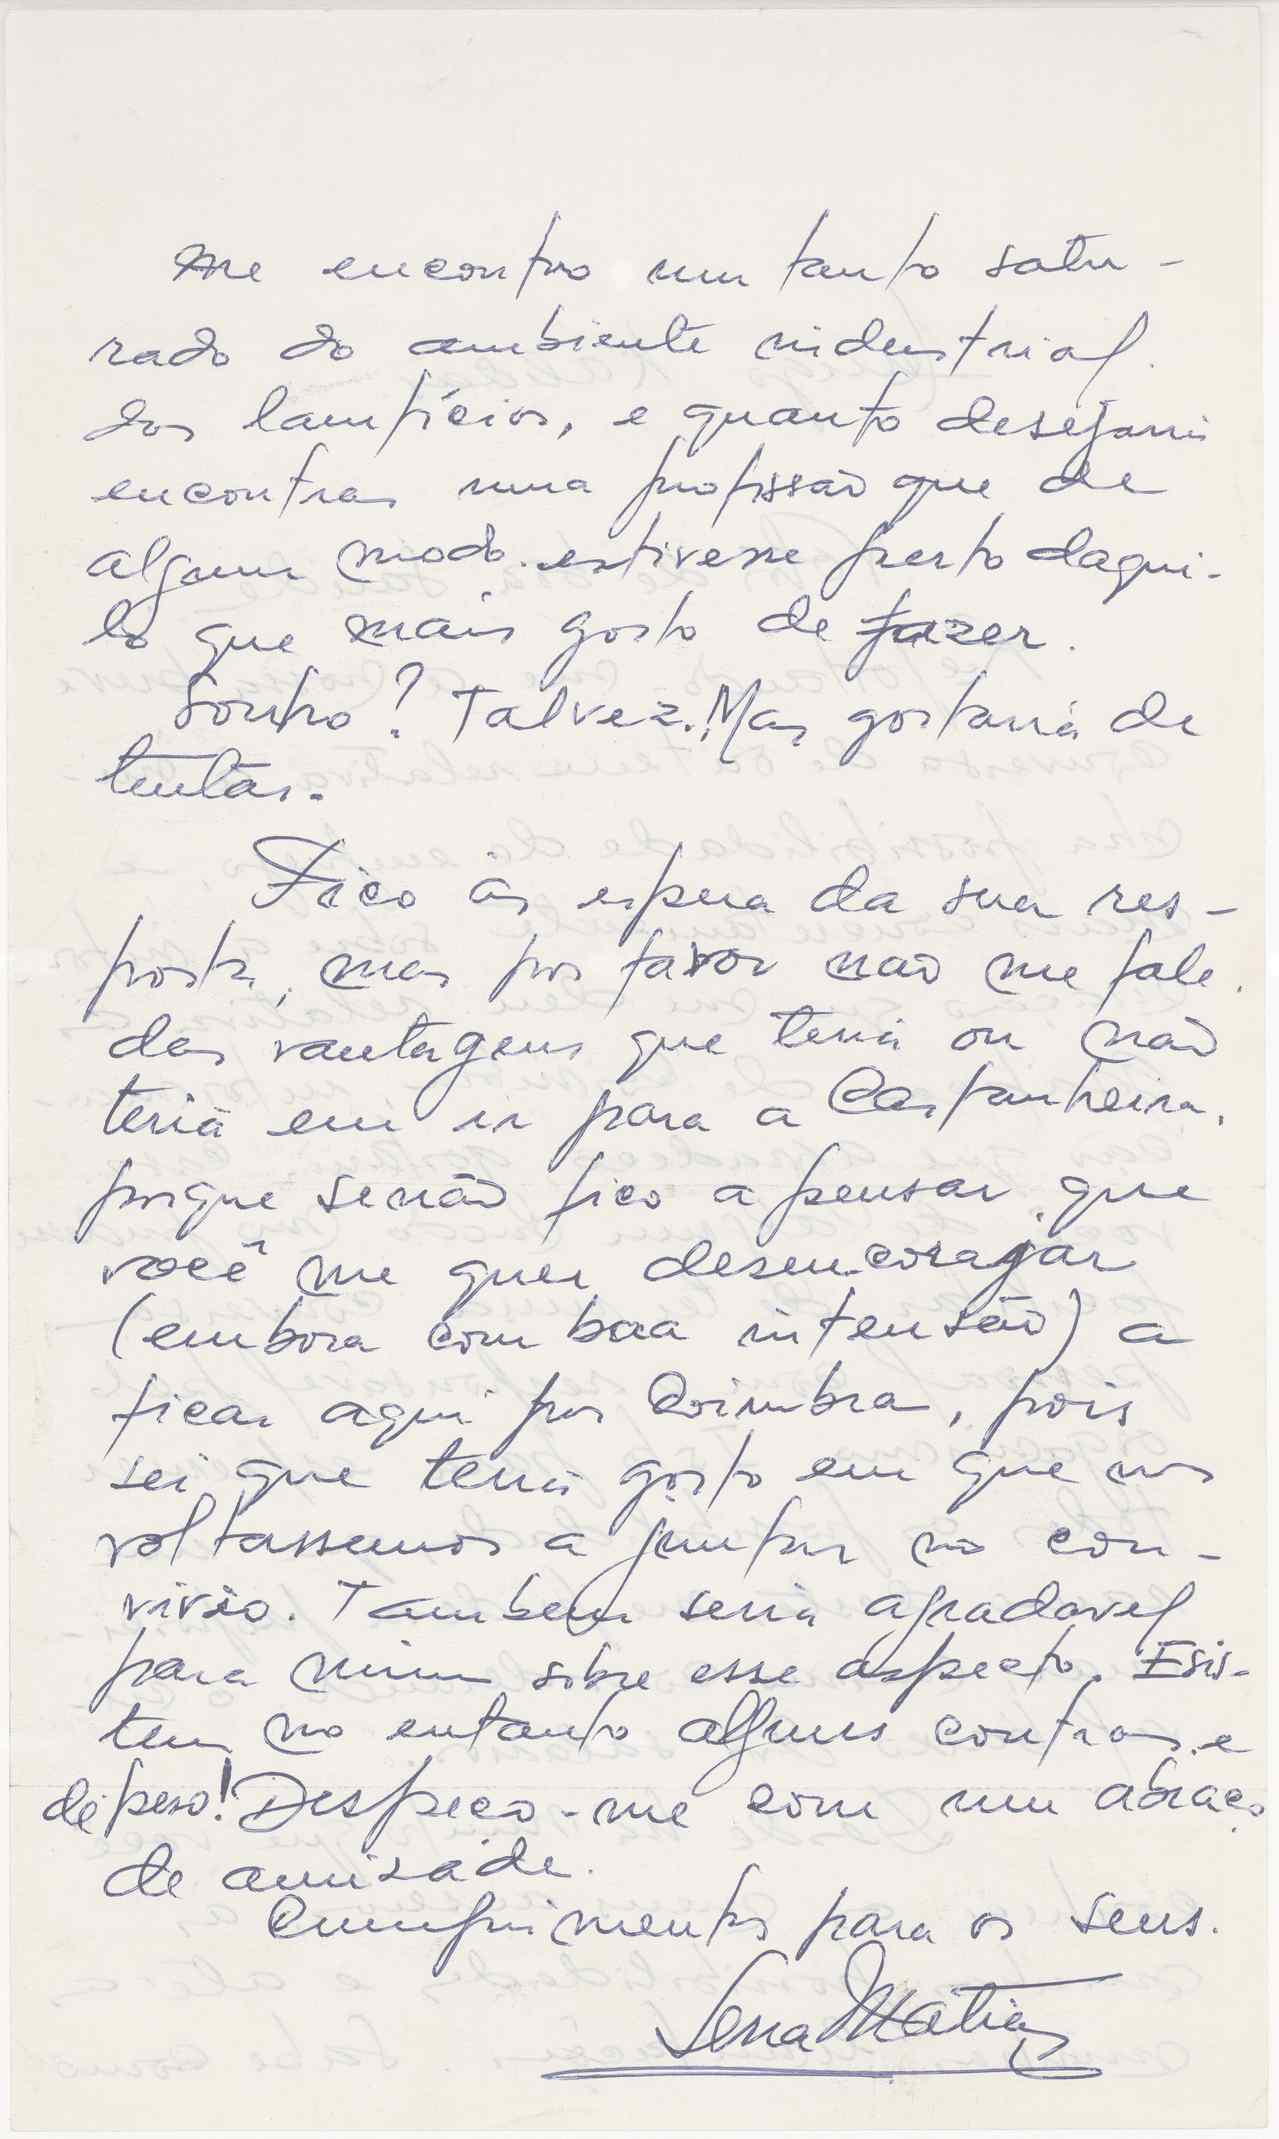 me encontro um tanto satu-
rado do ambiente industrial.
dos lanifícios, e quanto desejaria
encontrar uma profissão que de
algum modo estivesse perto daqui-
lo que mais gosto de fazer.
Sonho? Talvez. Mas gostaria de
tentar.
Fico às espera da sua res-
posta, mas por favor não me fale.
das vantagens que teria ou não
teria em ir para a Castanheira,
porque senão fico a pensar que
você me quer desencorajar
(embora com boa intensão) a
ficar aqui por Coimbra, pois
sei que teria gosto em que nos
voltassemos a juntar no con-
vivio. Tambem seria agradavel
para mim sobre esse aspecto. Esis-
tem no entanto alguns contras e
de peso! Despeço-me com um abraço
de amisade.
Cumprimentos para os seus.
Sena Matias